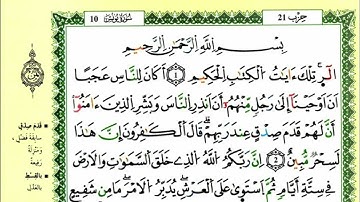 حزب 21
سورة يونس 10
بِسْمِ اللَّهِ الرَّحْمَٰنِ الرَّحِيمِ
الٓر تِلْكَ ءَايَٰتُ الْكِتَٰبِ الْحَكِيمِ ① أَكَانَ لِلنَّاسِ عَجَبًا
اَنَ اَوْحَيْنَآ إِلَىٰ رَجُلٍ مِّنْهُمُۥٓ أَنَ اَنذِرِ النَّاسَ وَبَشِّرِ الذِينَ ءَامَنُوٓاْ
أَنَّ لَهُمْ قَدَمَ صِدْقٍ عِندَ رَبِّهِمْ قَالَ الْكَٰفِرُونَ إِنَّ هَٰذَا
لَسِحْرٌ مُّبِينٌ ② إِنَّ رَبَّكُمُ اللَّهُ الذِے خَلَقَ السَّمَٰوَٰتِ وَالْأَرْضَ
فِے سِتَّةِ أَيَّامٍ ثُمَّ اَسْتَوَىٰ عَلَى الْعَرْشِ يُدَبِّرُ الْأَمْرَ مَا مِن شَفِيعٍ
قدم صدق
سابقة فضل
ومنزلة
رفيعة
بالقسط
بالعدل